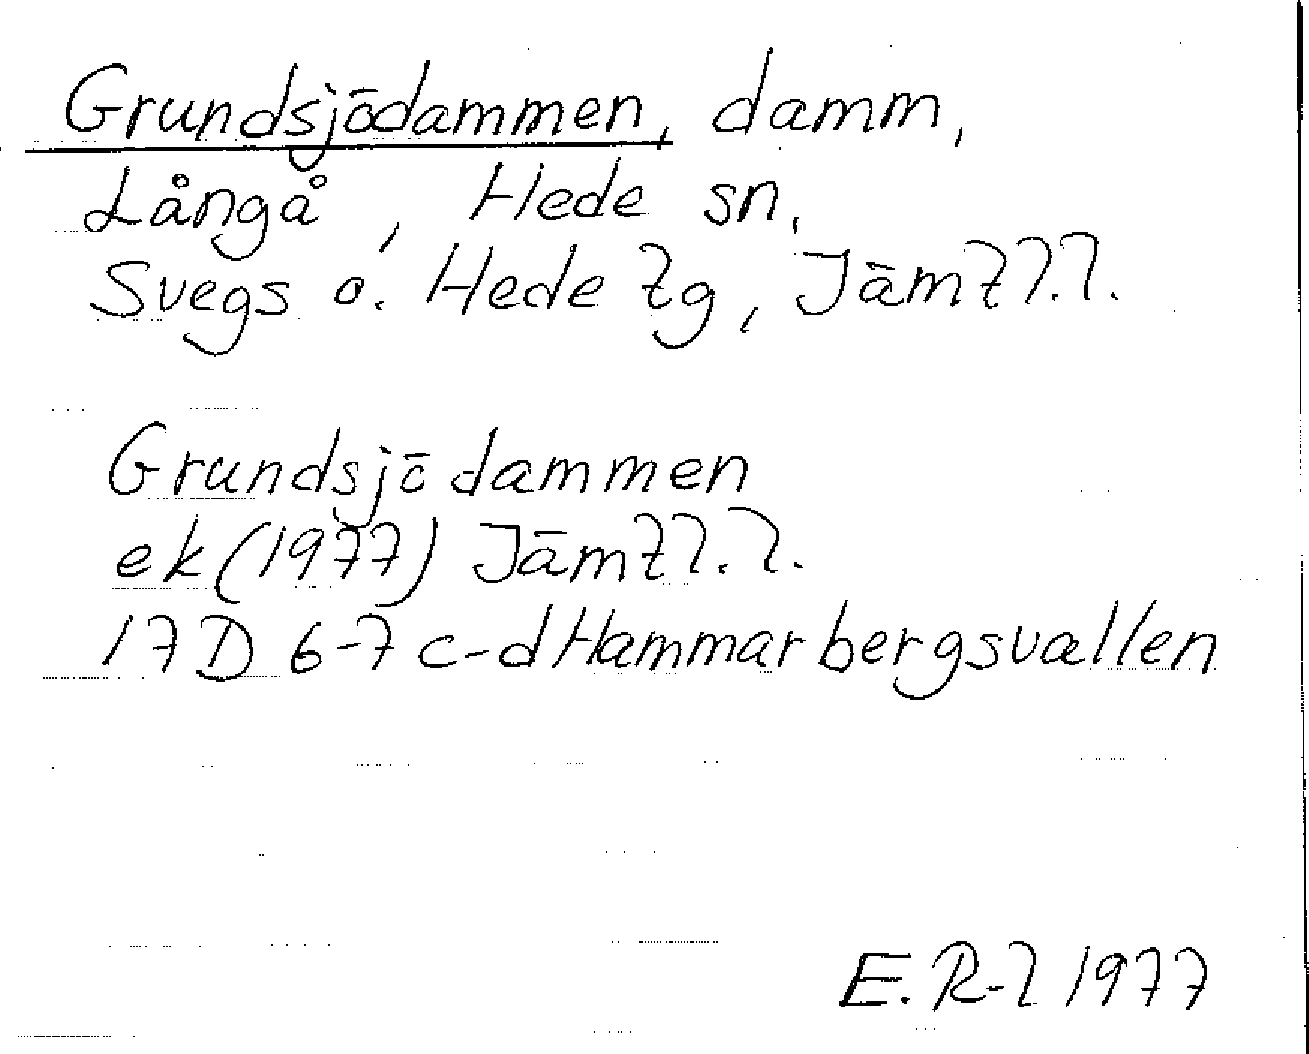 Grundsjödammen, damm,
Långå, Hede sn,
Svegs o. Hede tg, Jämtl.l.
Grundsjödammen
ek (1977) Jämtl.l.
17D 6-7 c-d Hammarbergsvallen
E. R-l 1977